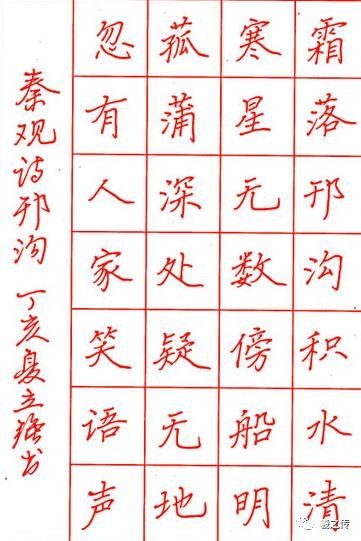 霜落邗沟积水清
寒星无数傍船明
菰蒲深处疑无地
忽有人家笑语声
秦观诗邗沟 丁亥夏立强书
羲之传